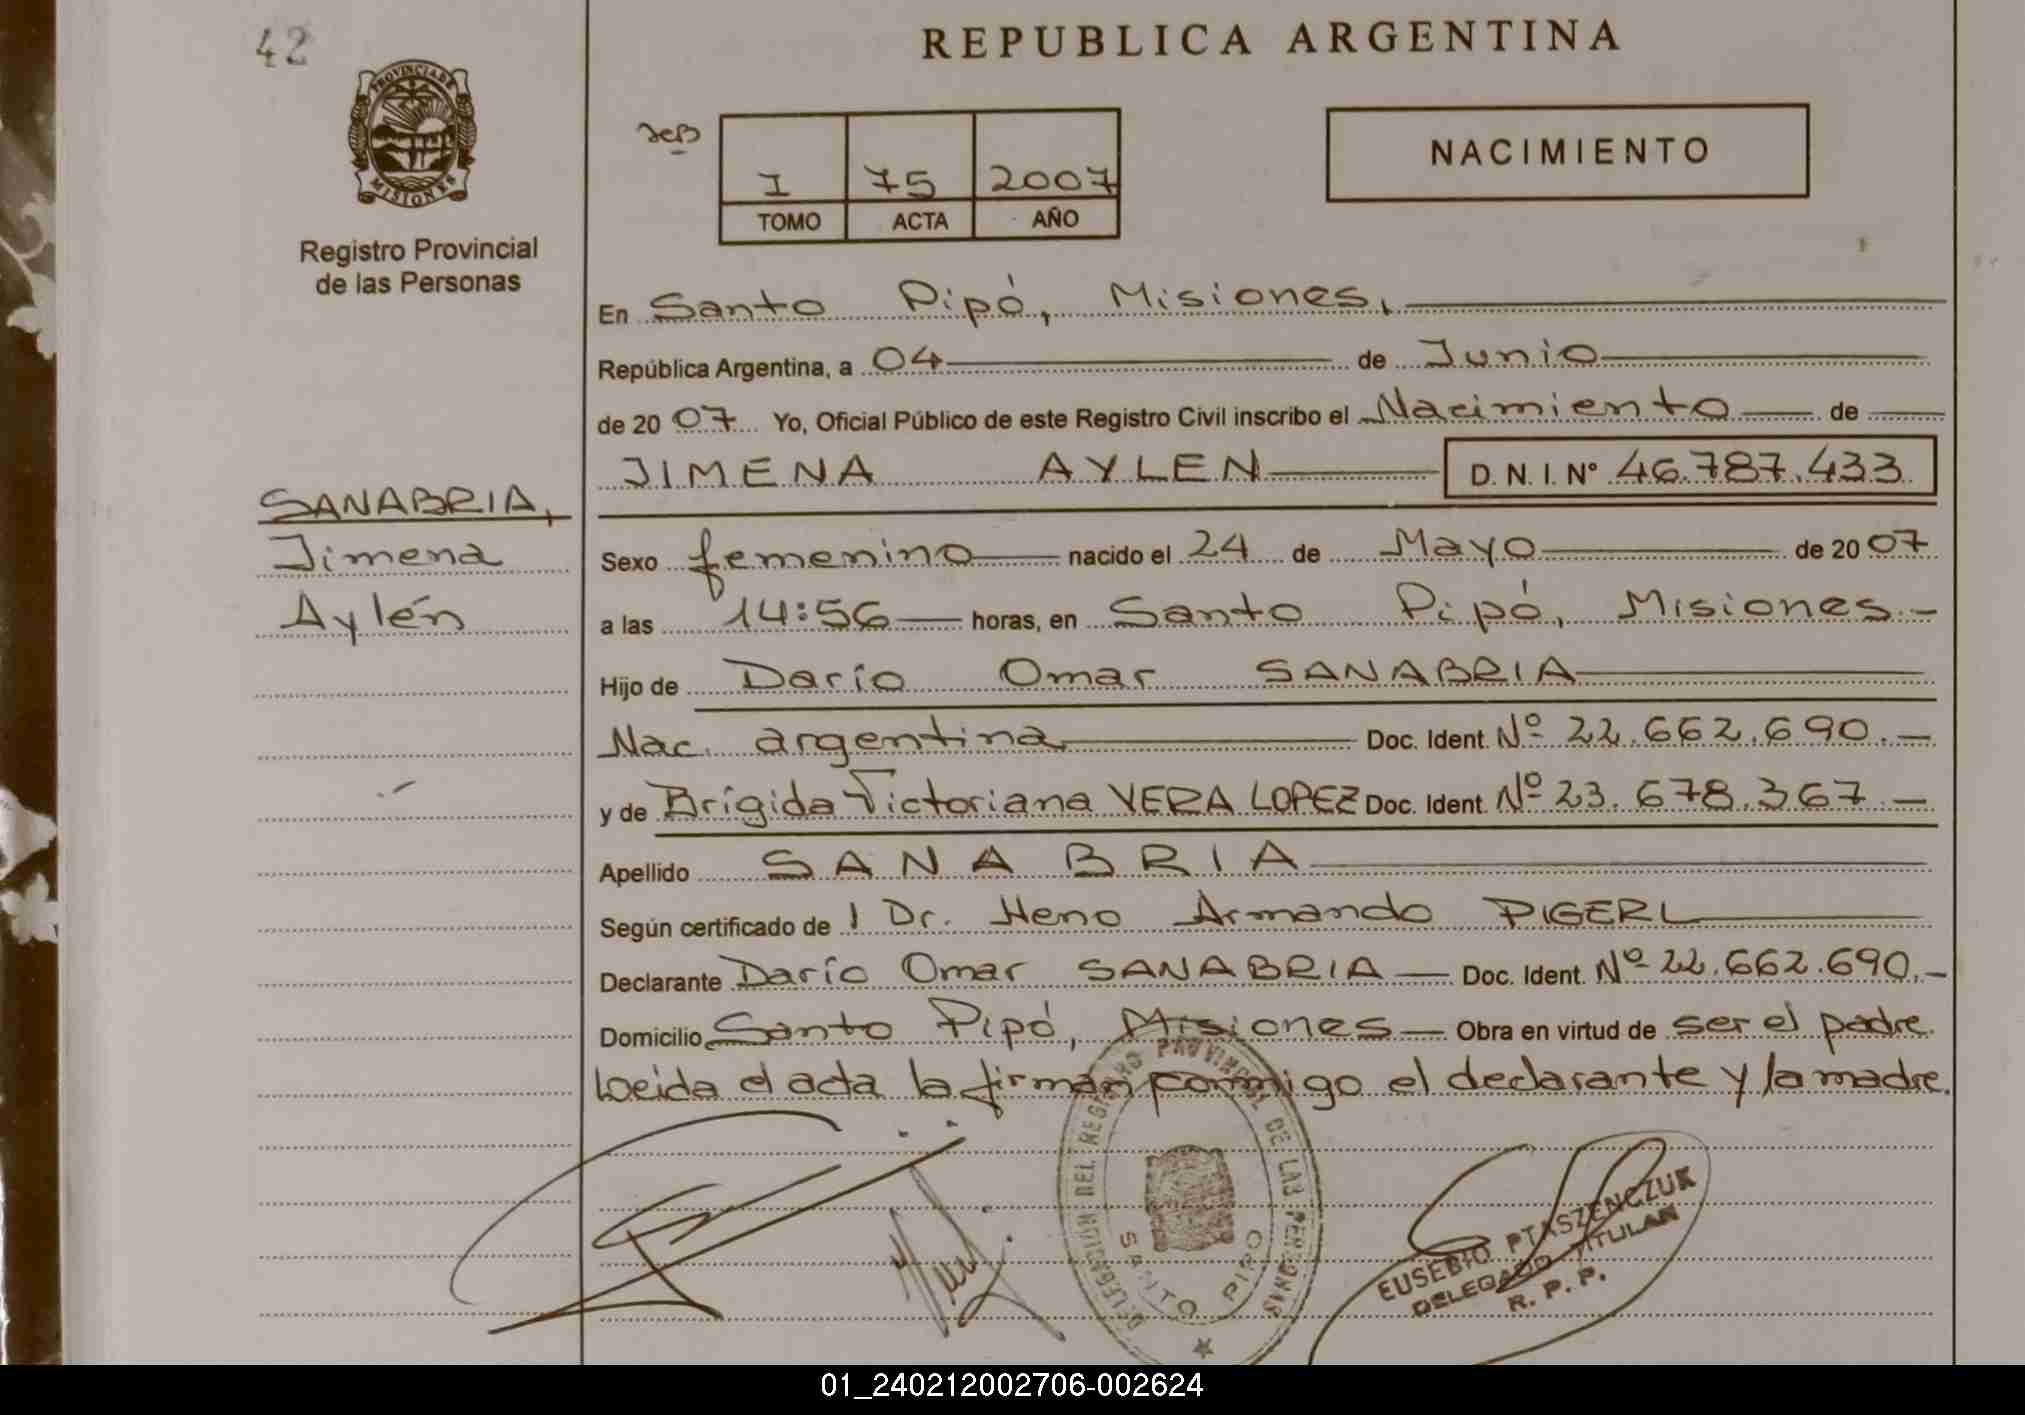 42
REPUBLICA ARGENTINA
PROVINCIA DE
MISIONES
Registro Provincial
de las Personas
I 75 2007
TOMO ACTA AÑO
NACIMIENTO
En Santo Pipó, Misiones,
República Argentina, a 04 de Junio
de 2007 Yo, Oficial Público de este Registro Civil inscribo el Nacimiento de
JIMENA AYLEN D. N. I. N° 46.787.433
SANABRIA,
Jimena
Aylén
Sexo femenino nacido el 24 de Mayo de 2007
a las 14:56 horas, en Santo Pipó, Misiones.-
Hijo de Darío Omar SANABRIA
Nac. argentina Doc. Ident. Nº 22.662.690.-
y de Brígida Victoriana VERA LOPEZ Doc. Ident. Nº 23.678.367.-
Apellido SANABRIA
Según certificado de l Dr. Heno Armando PIGERL
Declarante Darío Omar SANABRIA Doc. Ident. Nº 22.662.690.-
Domicilio Santo Pipó, Misiones Obra en virtud de ser el padre.
Leida el acta la firman conmigo el declarante y la madre.
DELEGACION DEL REGISTRO PROVINCIAL DE LAS PERSONAS
SANTO PIPO
EUSEBIO PTASZENCZUK
DELEGADO TITULAR
R. P. P.
01_240212002706-002624